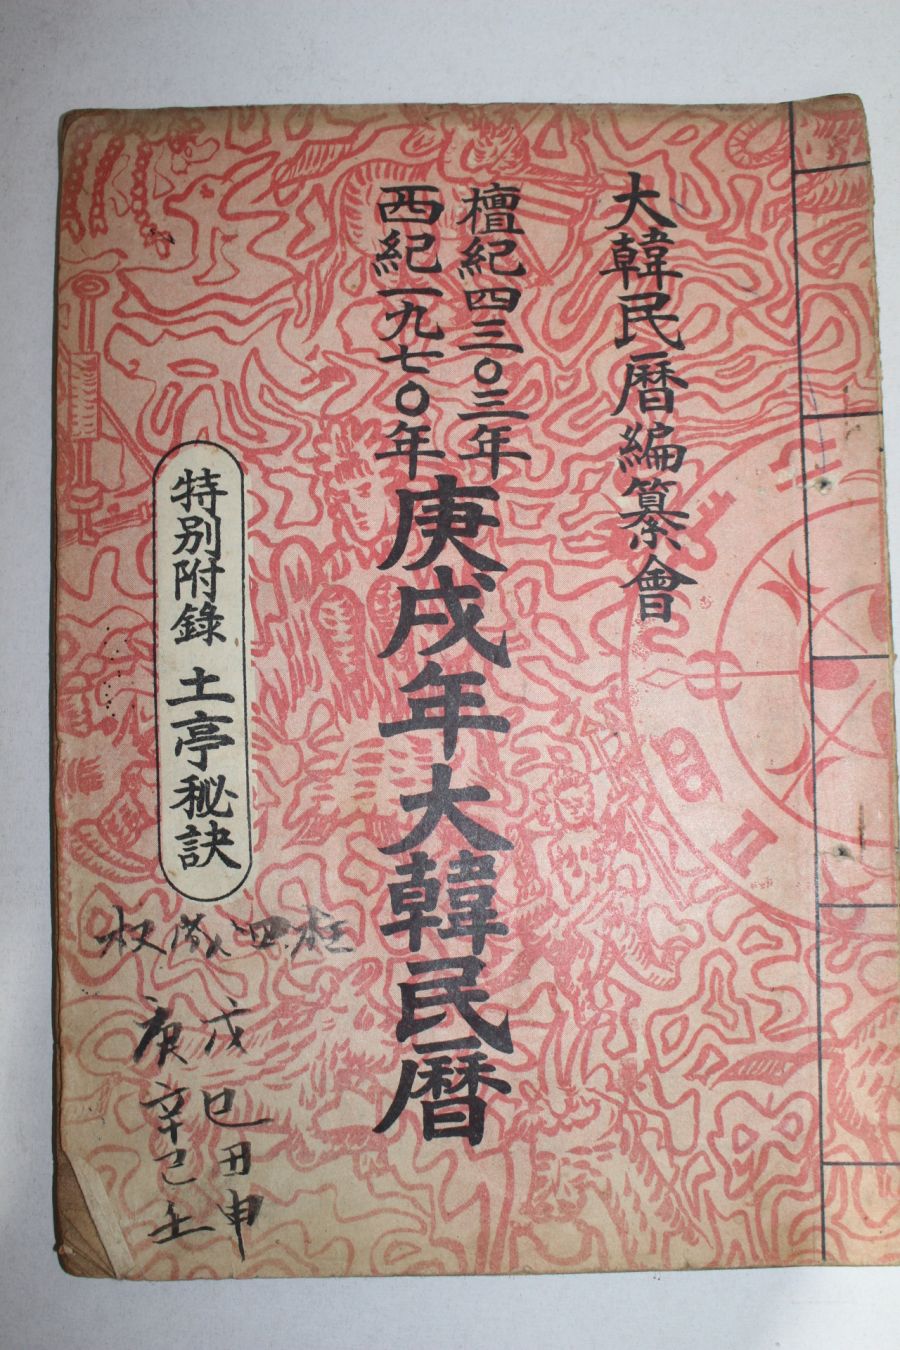 大韓民曆編纂會
檀紀四三〇三年
西紀一九七〇年
庚戌年大韓民曆
特別附錄 土亭秘訣
四柱
戊 己 丑 申
庚 辛 己 壬